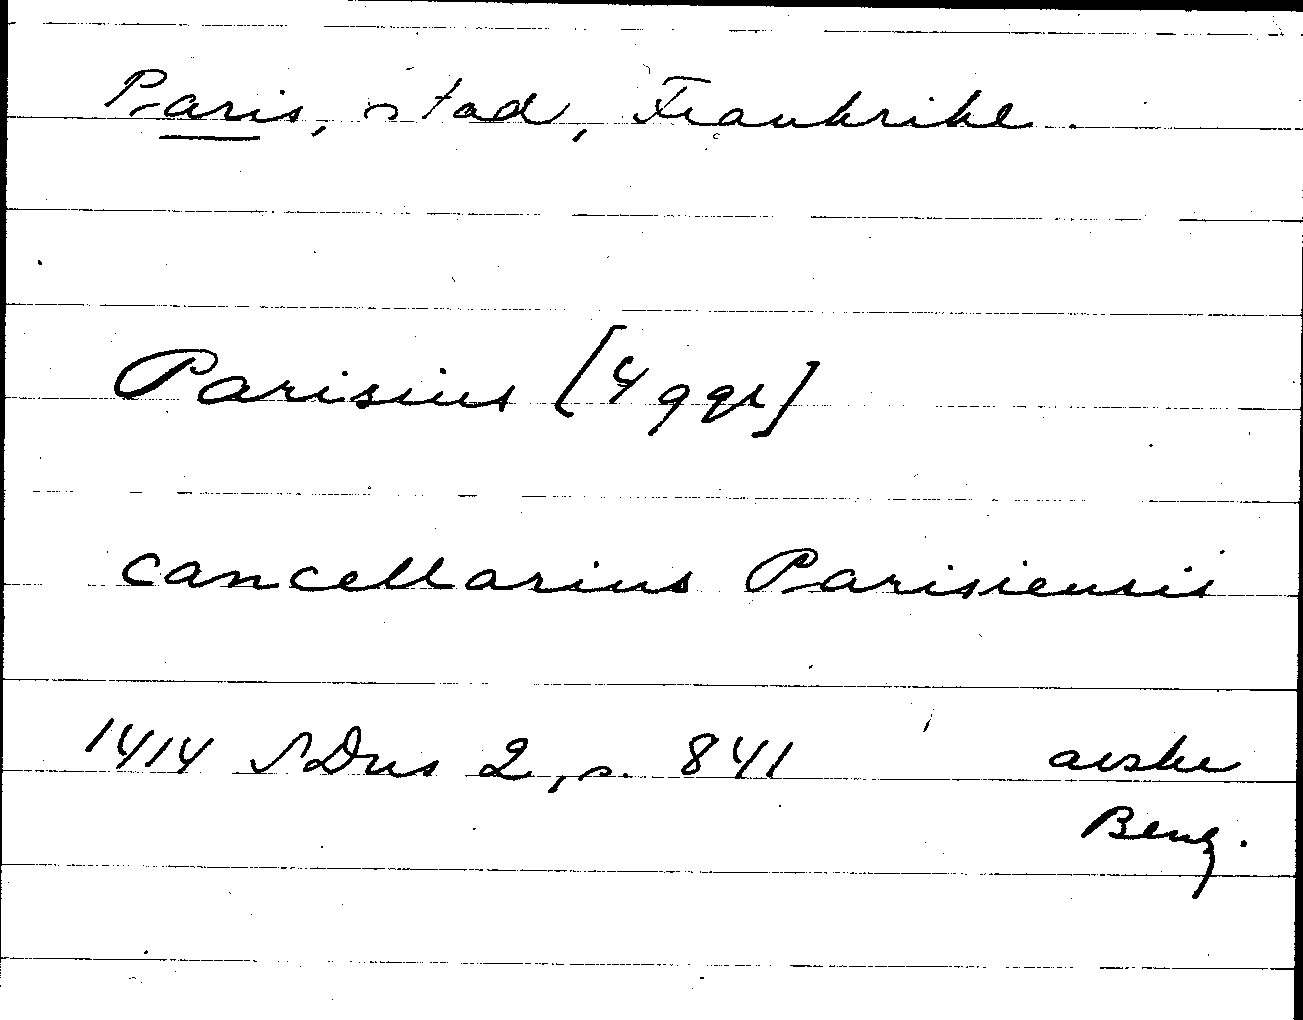 Paris, stad, Frankrike.
Parisius [4 ggr]
cancellarius Parisiensis
1414 SDns 2, s. 841 avskr
Benz.